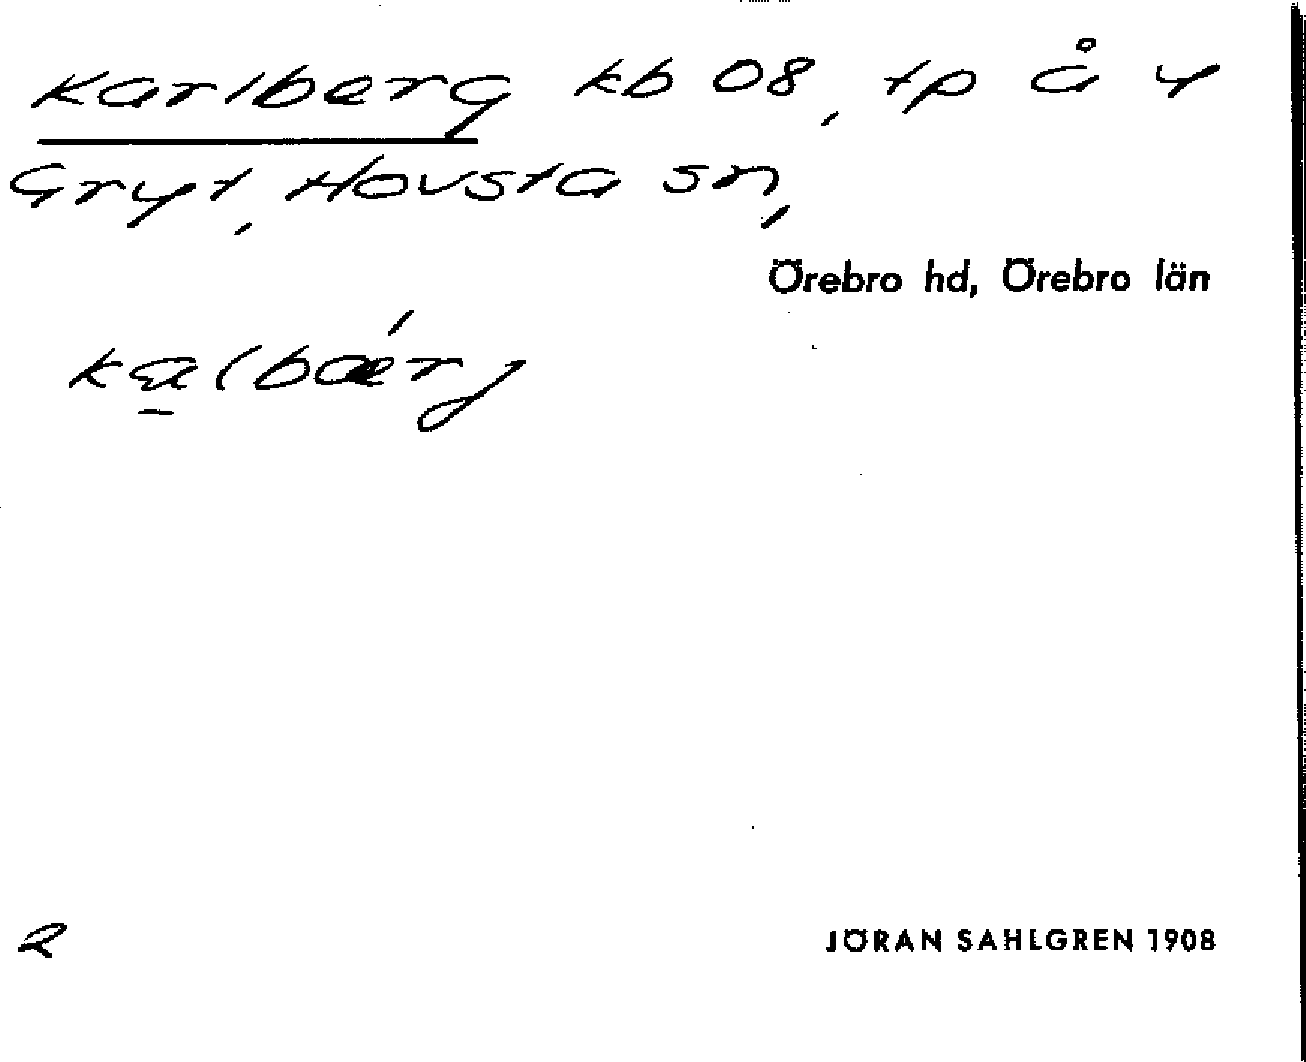 Karlberg kb 08, tp å y
Gryt, Hovsta sn,
Örebro hd, Örebro län
2
JÖRAN SAHLGREN 1908